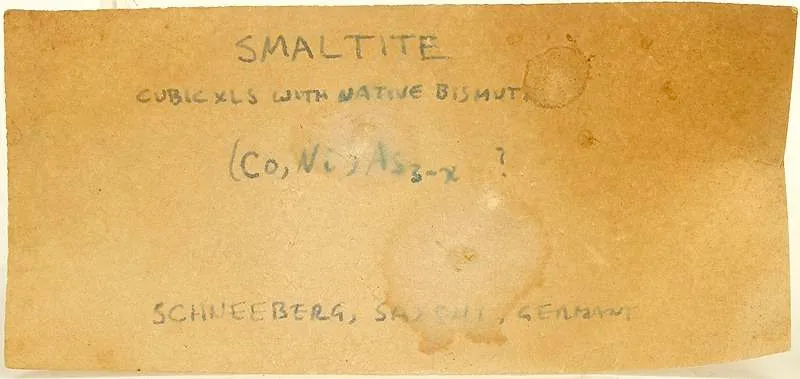 SMALTITE
CUBIC XLS WITH NATIVE BISMUTH
(Co, Ni) As3-x ?
SCHNEEBERG, SAXONY, GERMANY